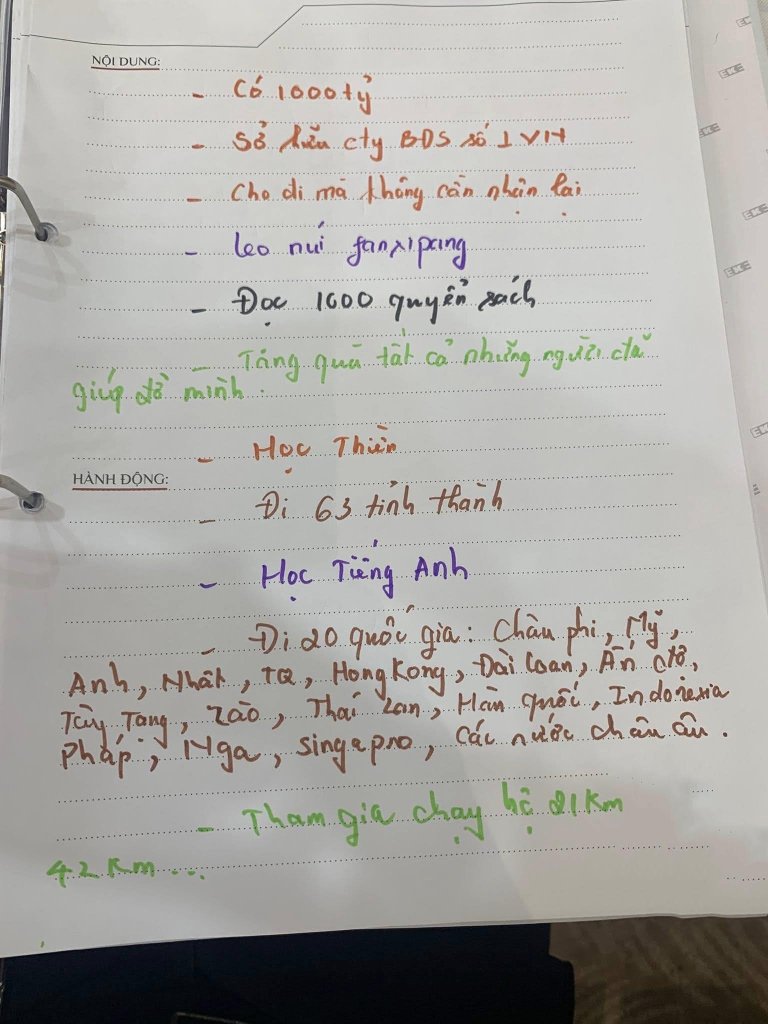 NỘI DUNG:
- Có 1000 tỷ
- Sở hữu cty BĐS số 1 VN
- Cho đi mà không cần nhận lại
- leo núi fanxipang
- Đọc 1000 quyển sách
- Tặng quà tất cả những người đã
giúp đỡ mình.
- Học Thiền
HÀNH ĐỘNG:
- Đi 63 tỉnh thành
- Học Tiếng Anh
- Đi 20 quốc gia: Châu phi, Mỹ,
Anh, Nhật, TQ, HongKong, Đài Loan, Ấn độ,
Tây Tạng, Lào, Thái Lan, Hàn quốc, Indonesia
Pháp, Nga, singapro, Các nước châu âu.
- Tham gia chạy hộ 21 Km
42 Km ...
EKE
EKE
EKE
EKE
EKE